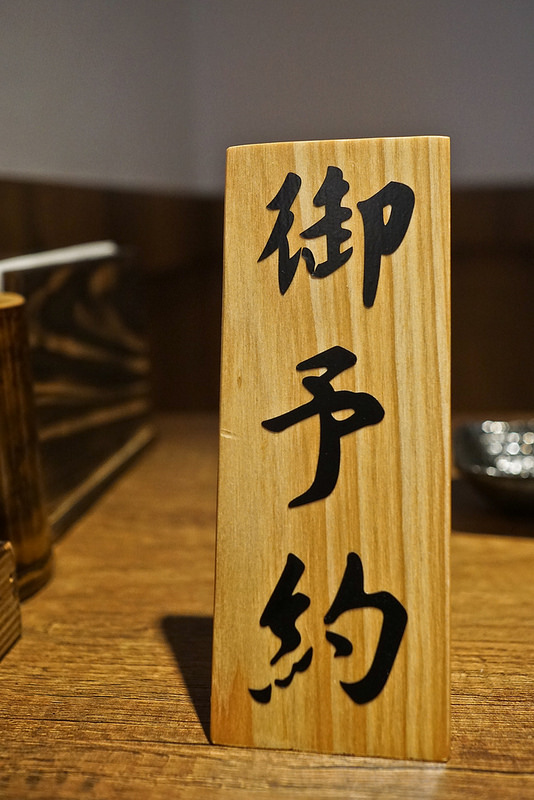 御予約